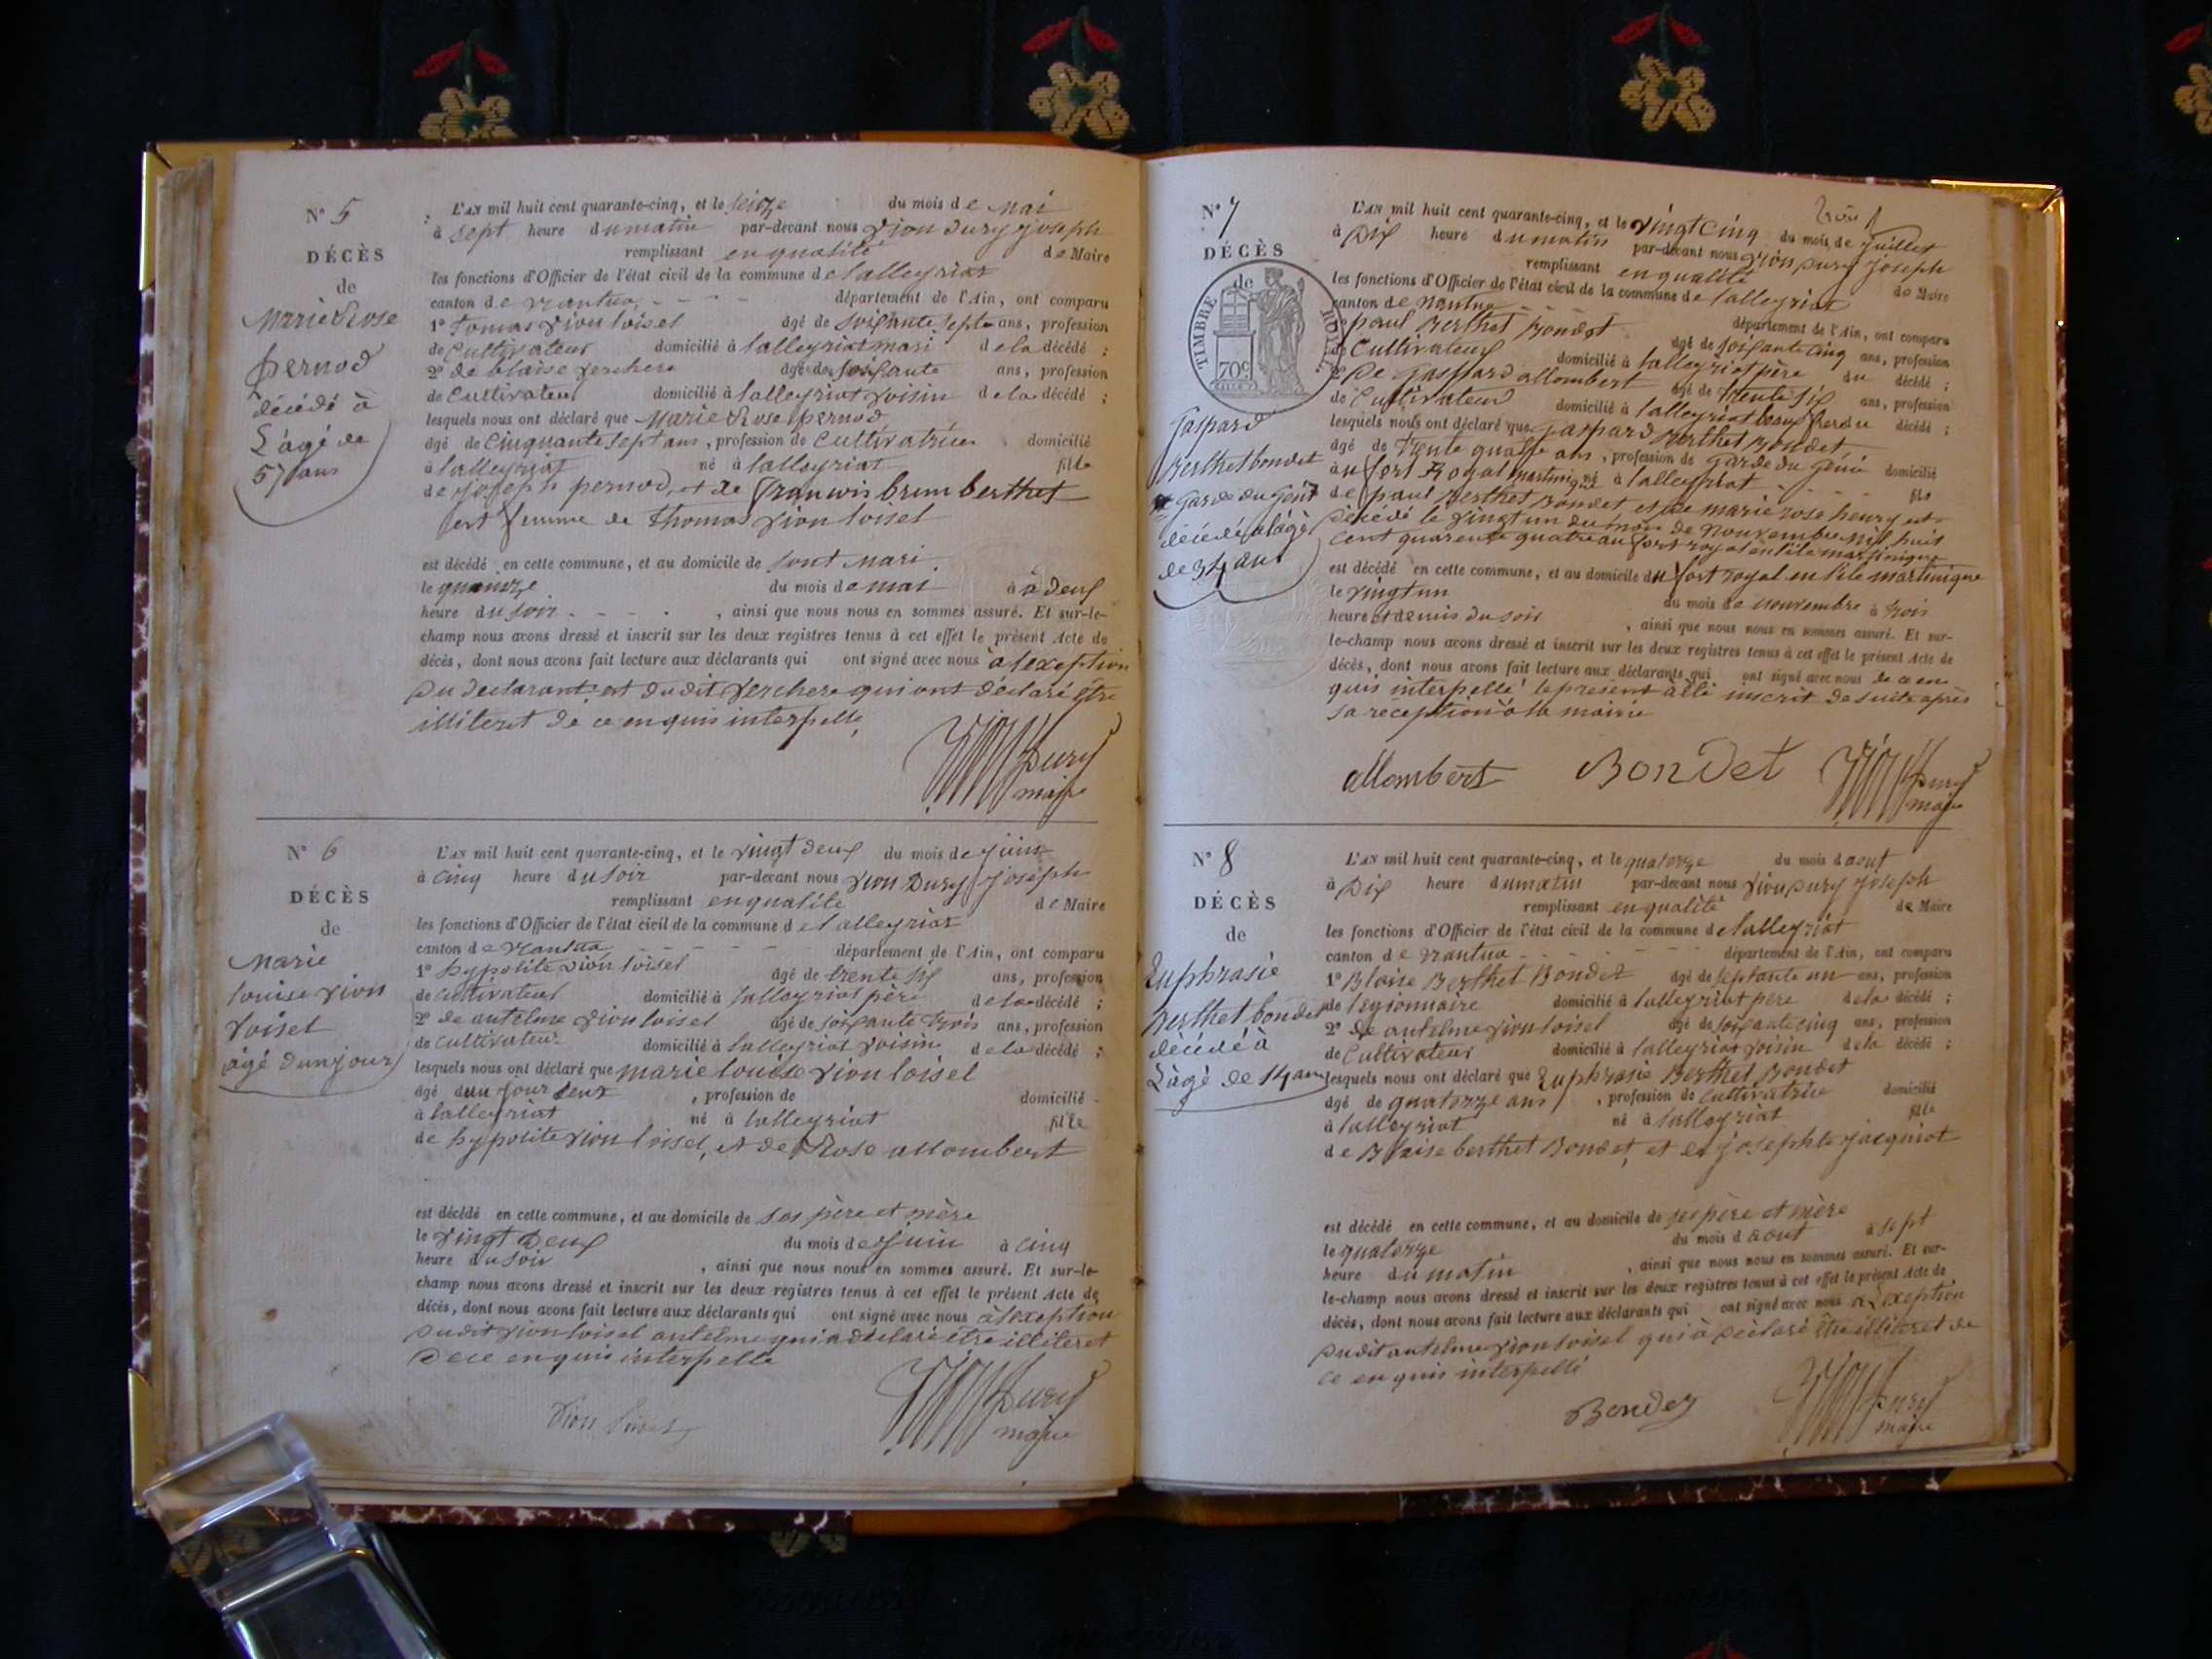 N° 5
DÉCÈS
de
Marie Rose
pernod
décédé à
L'âgé de
57 ans
L'AN mil huit cent quarante-cinq, et le seize du mois de mai
à sept heure du matin par-devant nous Vion Dury joseph
remplissant en qualité de Maire
les fonctions d'Officier de l'état civil de la commune de lalleyriat
canton de Nantua département de l'Ain, ont comparu
1° Tomas Vion loisel âgé de soixante sept ans, profession
de Cultivateur domicilié à lalleyriat mari de la décédé ;
2° de blaise Verchere âgé de soixante ans, profession
de Cultivateur domicilié à lalleyriat voisin de la décédé ;
lesquels nous ont déclaré que Marie Rose pernod
âgé de Cinquante sept ans, profession de Cultivatrice domicilié
à lalleyriat né à lalleyriat fille
de joseph pernod, et de brun berthet
est femme de Thomas Vion loisel
est décédé en cette commune, et au domicile de sont mari
le quainze du mois de mai à à deux
heure du soir , ainsi que nous nous en sommes assuré. Et sur-le-
champ nous avons dressé et inscrit sur les deux registres tenus à cet effet le présent Acte de
décès, dont nous avons fait lecture aux déclarants qui ont signé avec nous a lexeption
du declarant et du dit Verchere qui ont déclaré être
illiteret de ce enquis interpelle
Vion Dury
maire
N° 6
DÉCÈS
de
Marie
louise vion
Loisel
âgé dun jour
L'AN mil huit cent quarante-cinq, et le vingt deux du mois de juin
à cinq heure du soir par-devant nous Vion Dury Joseph
remplissant en qualité de Maire
les fonctions d'Officier de l'état civil de la commune de lalleyriat
canton de Nantua département de l'Ain, ont comparu
1° hypolite Vion loisel âgé de trente six ans, profession
de cultivateur domicilié à lalleyriat père de la décédé ;
2° de antelme Vion loisel âgé de soixante trois ans, profession
de cultivateur domicilié à lalleyriat voisin de la décédé ;
lesquels nous ont déclaré que marie louise Vion loisel
âgé dun jour , profession de domicilié
à lalleyriat né à lalleyriat fille
de hypolite Vion loisel, et de Rose allombert
est décédé en cette commune, et au domicile de ses père et mère
le vingt deux du mois de juin à cinq
heure du soir , ainsi que nous nous en sommes assuré. Et sur-le-
champ nous avons dressé et inscrit sur les deux registres tenus à cet effet le présent Acte de
décès, dont nous avons fait lecture aux déclarants qui ont signé avec nous à lexeption
du dit Vion loisel antelme qui a déclaré être illiteret
de ce enquis interpelle
Vion loisel
Vion Dury
maire
N° 7
DÉCÈS
de
TIMBRE ROYAL
70c
Gaspard
Berthet bondet
Garde du Génie
décédé a lagé
de 34 ans
L'AN mil huit cent quarante-cinq, et le vingt cinq du mois de juillet
à Dix heure du matin par-devant nous Vion Dury Joseph
remplissant en qualité de Maire
les fonctions d'Officier de l'état civil de la commune de lalleyriat
canton de Nantua département de l'Ain, ont comparu
paul Berthet Bondet âgé de soixante cinq ans, profession
de Cultivateur domicilié à lalleyriat père du décédé ;
2° de Gaspard allombert âgé de trente six ans, profession
de Cultivateur domicilié à lalleyriat beau frere du décédé ;
lesquels nous ont déclaré que Gaspard Berthet Bondet
âgé de trente quatre ans, profession de Garde du génie domicilié
au fort Royal martinique né à lalleyriat fils
de paul Berthet Bondet et de marie rose henry est
décédé le vingt un du mois de Nouvembre mil huit
cent quarente quatre au fort royal en lile martinique
est décédé en cette commune, et au domicile du fort royal en l'ile martinique
le vingt un du mois de nouvembre à trois
heure et demis du soir , ainsi que nous nous en sommes assuré. Et sur-
le-champ nous avons dressé et inscrit sur les deux registres tenus à cet effet le présent Acte de
décès, dont nous avons fait lecture aux déclarants qui ont signé avec nous de ce en
quis interpellé le present a été inscrit de suite après
sa reception à la mairie
allombert Bondet Vion Dury
maire
N° 8
DÉCÈS
de
Euphrasie
Berthet bondet
décédé à
L'âgé de 14 ans
L'AN mil huit cent quarante-cinq, et le quatorze du mois d aout
à Dix heure du matin par-devant nous Vion Dury Joseph
remplissant en qualité de Maire
les fonctions d'Officier de l'état civil de la commune de lalleyriat
canton de Nantua département de l'Ain, ont comparu
1° Blaise Berthet Bondet âgé de septante un ans, profession
de legionnaire domicilié à lalleyriat pere de la décédé ;
2° de antelme Vion loisel âgé de soixante cinq ans, profession
de Cultivateur domicilié à lalleyriat voisin de la décédé ;
lesquels nous ont déclaré que Euphrasie Berthet Bondet
âgé de quatorze ans , profession de Cultivatrice domicilié
à lalleyriat né à lalleyriat fille
de Blaise berthet Bondet, et de josephte jacquiot
est décédé en cette commune, et au domicile de ses père et mère
le quatorze du mois d aout à sept
heure du matin , ainsi que nous nous en sommes assuré. Et sur-
le-champ nous avons dressé et inscrit sur les deux registres tenus à cet effet le présent Acte de
décès, dont nous avons fait lecture aux déclarants qui ont signé avec nous à L'exeption
du dit antelme Vion loisel qui à déclaré être illiteret de
ce enquis interpellé
Bondet
Vion Dury
maire